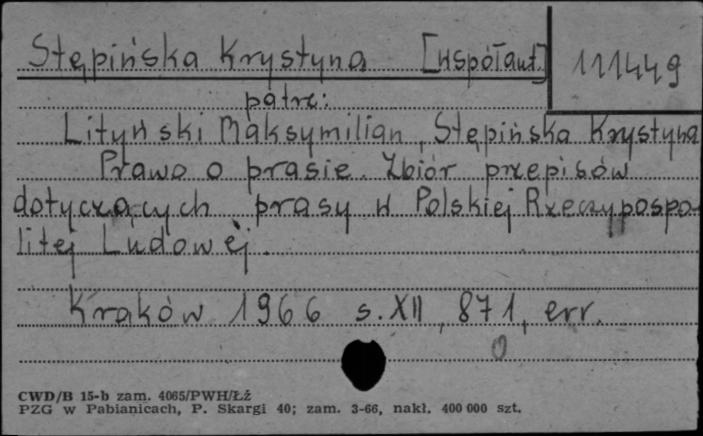 Stępińska Krystyna [współaut.] 111449
patrz:
Lityński Maksymilian, Stępińska Krystyna
Prawo o prasie. Zbiór przepisów
dotyczących prasy w Polskiej Rzeczypospo-
litej Ludowej.
Kraków 1966 s. XII, 871, err.
CWD/B 15-b zam. 4065/PWH/Łż
PZG w Pabianicach, P. Skargi 40; zam. 3-66, nakł. 400 000 szt.